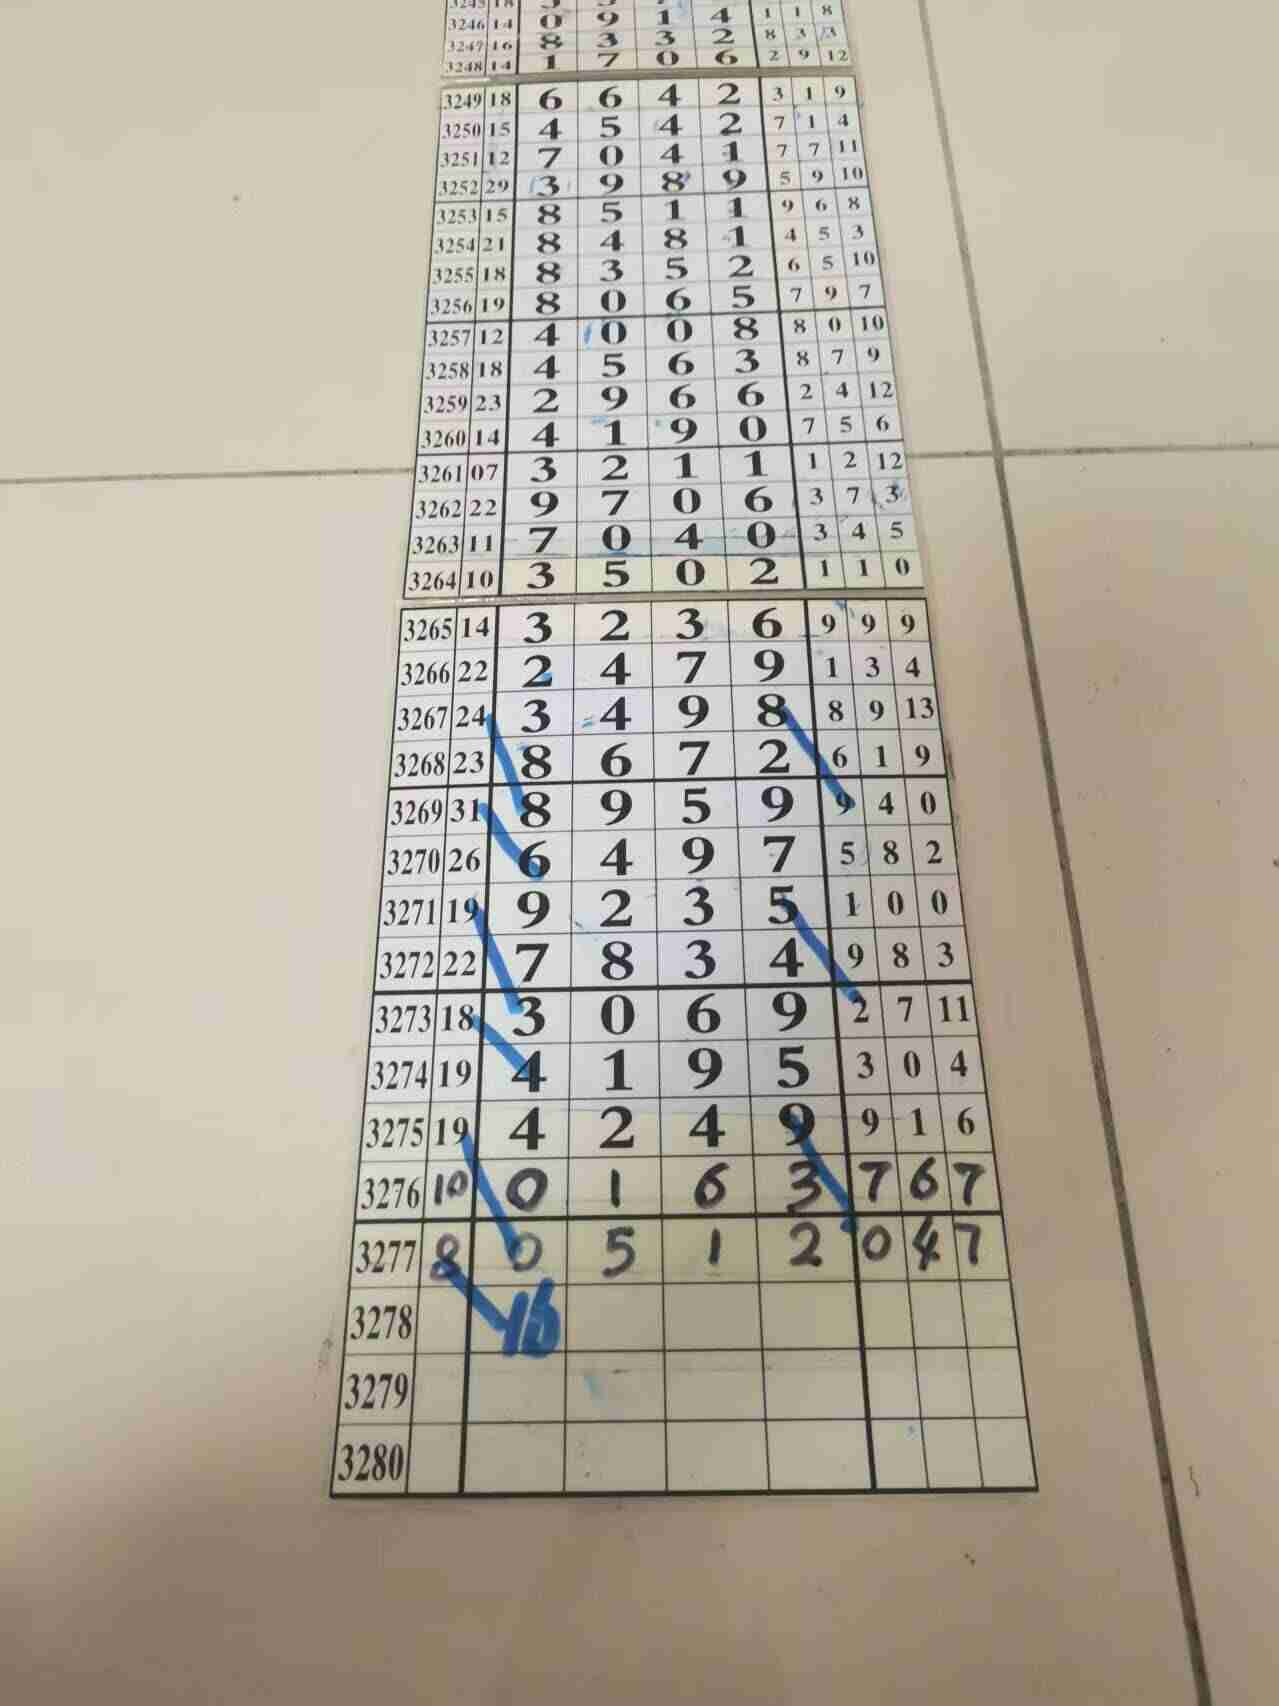 3246 14 0 9 1 4 1 1 8
3247 16 8 3 3 2 8 3 3
3248 14 1 7 0 6 2 9 12
3249 18 6 6 4 2 3 1 9
3250 15 4 5 4 2 7 1 4
3251 12 7 0 4 1 7 7 11
3252 29 3 9 8 9 5 9 10
3253 15 8 5 1 1 9 6 8
3254 21 8 4 8 1 4 5 3
3255 18 8 3 5 2 6 5 10
3256 19 8 0 6 5 7 9 7
3257 12 4 0 0 8 8 0 10
3258 18 4 5 6 3 8 7 9
3259 23 2 9 6 6 2 4 12
3260 14 4 1 9 0 7 5 6
3261 07 3 2 1 1 1 2 12
3262 22 9 7 0 6 3 7 3
3263 11 7 0 4 0 3 4 5
3264 10 3 5 0 2 1 1 0
3265 14 3 2 3 6 9 9 9
3266 22 2 4 7 9 1 3 4
3267 24 3 4 9 8 8 9 13
3268 23 8 6 7 2 6 1 9
3269 31 8 9 5 9 9 4 0
3270 26 6 4 9 7 5 8 2
3271 19 9 2 3 5 1 0 0
3272 22 7 8 3 4 9 8 3
3273 18 3 0 6 9 2 7 11
3274 19 4 1 9 5 3 0 4
3275 19 4 2 4 9 9 1 6
3276 10 0 1 6 3 7 6 7
3277 8 0 5 1 2 0 4 7
3278 16
3279
3280